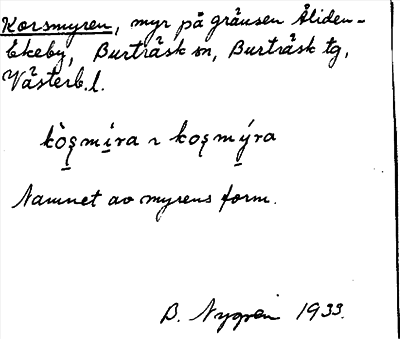 Korsmyren, myr på gränsen Åliden-
Ekeby, Burträsk sn, Burträsk tg,
Västerb.l.
kòʂmíra ɿ koʂmýra
Namnet av myrens form.
B. Nygren 1933.